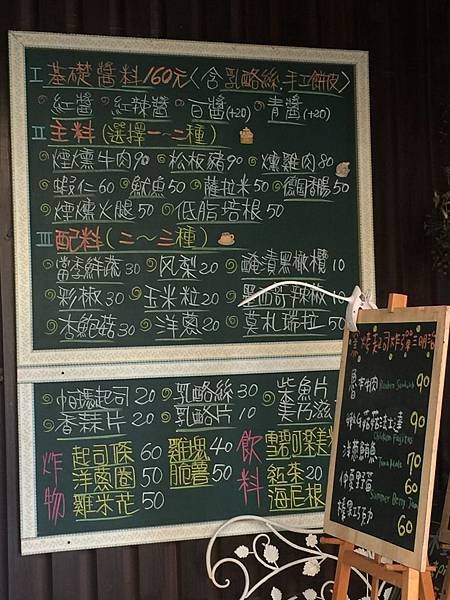 I 基礎醬料160元〈含乳酪絲.手工餅皮〉
紅醬 紅辣醬 白醬(+20) 青醬(+20)
II 主料(選擇一~二種)
煙燻牛肉90 松板豬90 燻雞肉80
蝦仁60 魷魚50 薩拉米50 德國香腸50
煙燻火腿50 低脂培根50
III 配料(二~三種)
當季鮮蔬30 鳳梨20 醃漬黑橄欖10
彩椒30 玉米粒20 墨西哥辣椒10
杏鮑菇30 洋蔥20 莫札瑞拉50
帕瑪起司20 乳酪絲30 柴魚片
香蒜片20 乳酪片10 美乃滋
炸物
起司條60 雞塊40
洋蔥圈50 脆薯50
雞米花50
飲料
雪碧.可樂.美
紅茶20
海尼根
烤起司炸彈三明治
魯本牛肉 Reuben Sandwich 90
Chicken Fajitas 90
洋蔥鮪魚 Tuna Melt 70
仲夏野莓 Summer Berry Jam 60
榛果巧克力 60